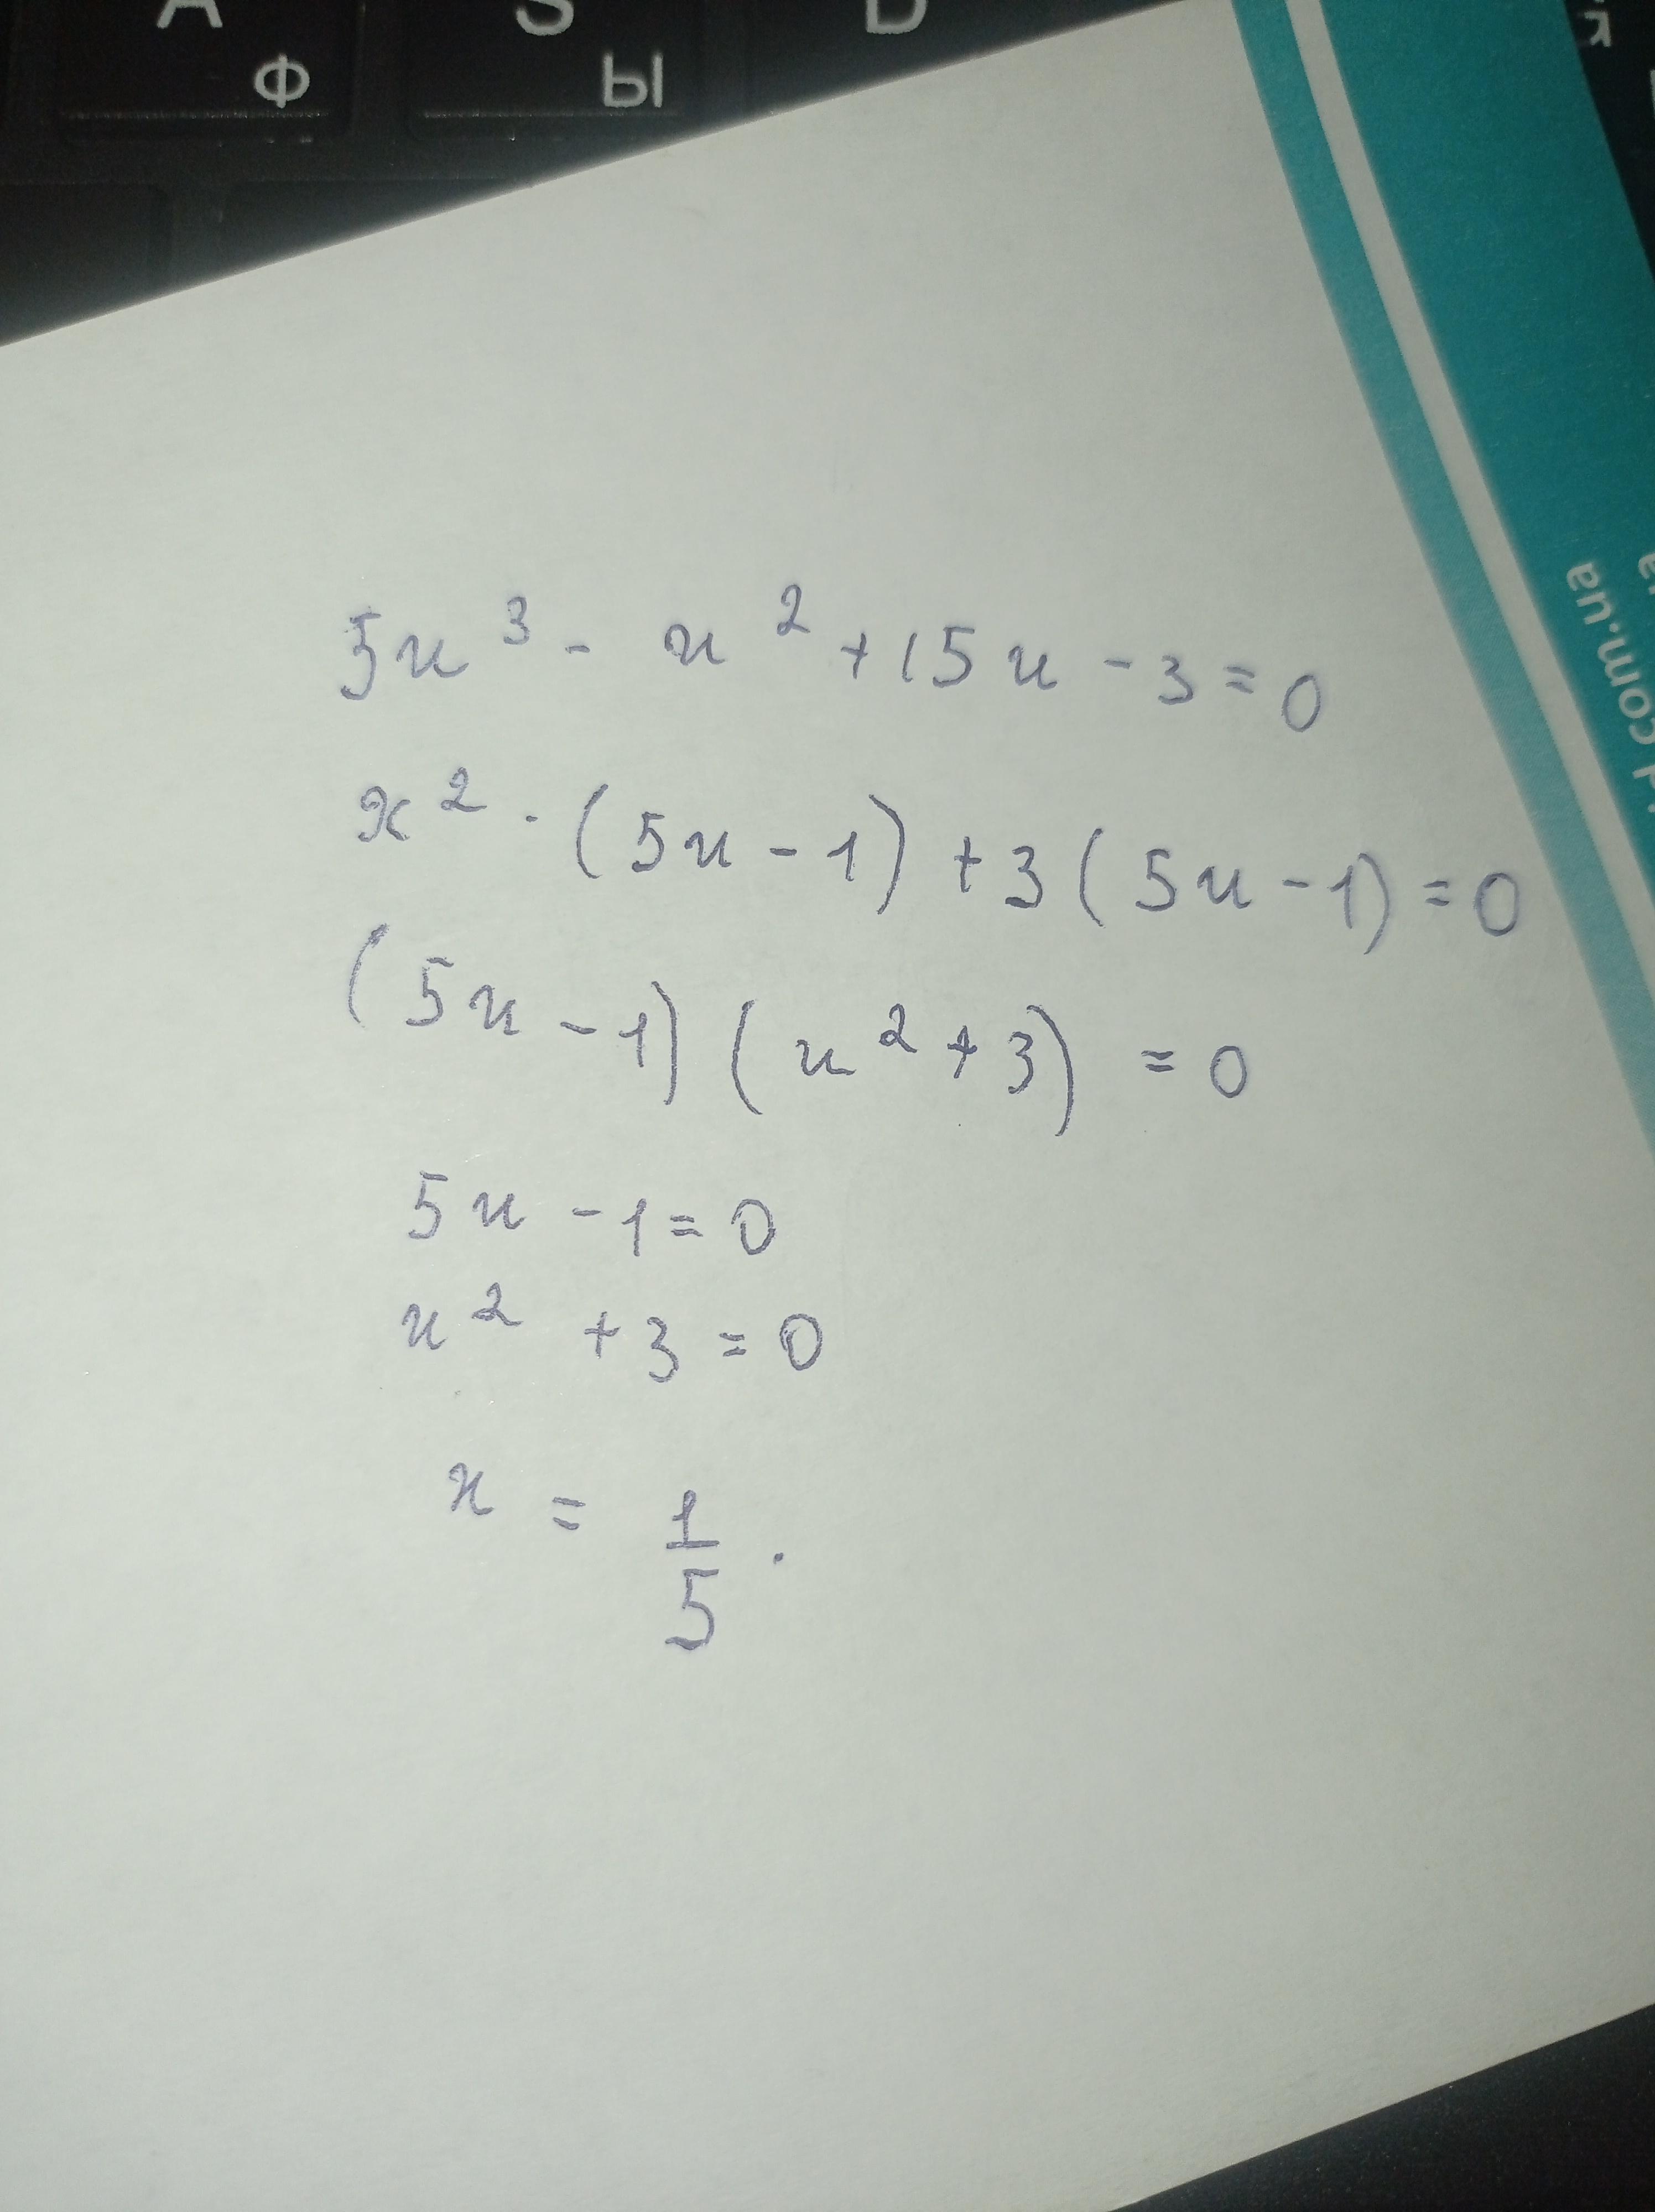 A S D
Ф Ы
5x³ - x² + 15x - 3 = 0
x² · (5x - 1) + 3(5x - 1) = 0
(5x - 1)(x² + 3) = 0
5x - 1 = 0
x² + 3 = 0
x = 1/5.
com.ua